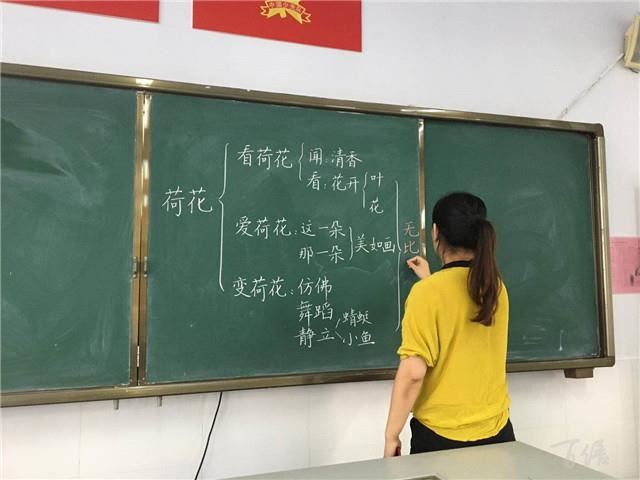 荷花
看荷花
闻:清香
看:花开
叶
花
爱荷花:这一朵
那一朵
美如画
无比
变荷花:仿佛
舞蹈
静立
蜻蜓
小鱼